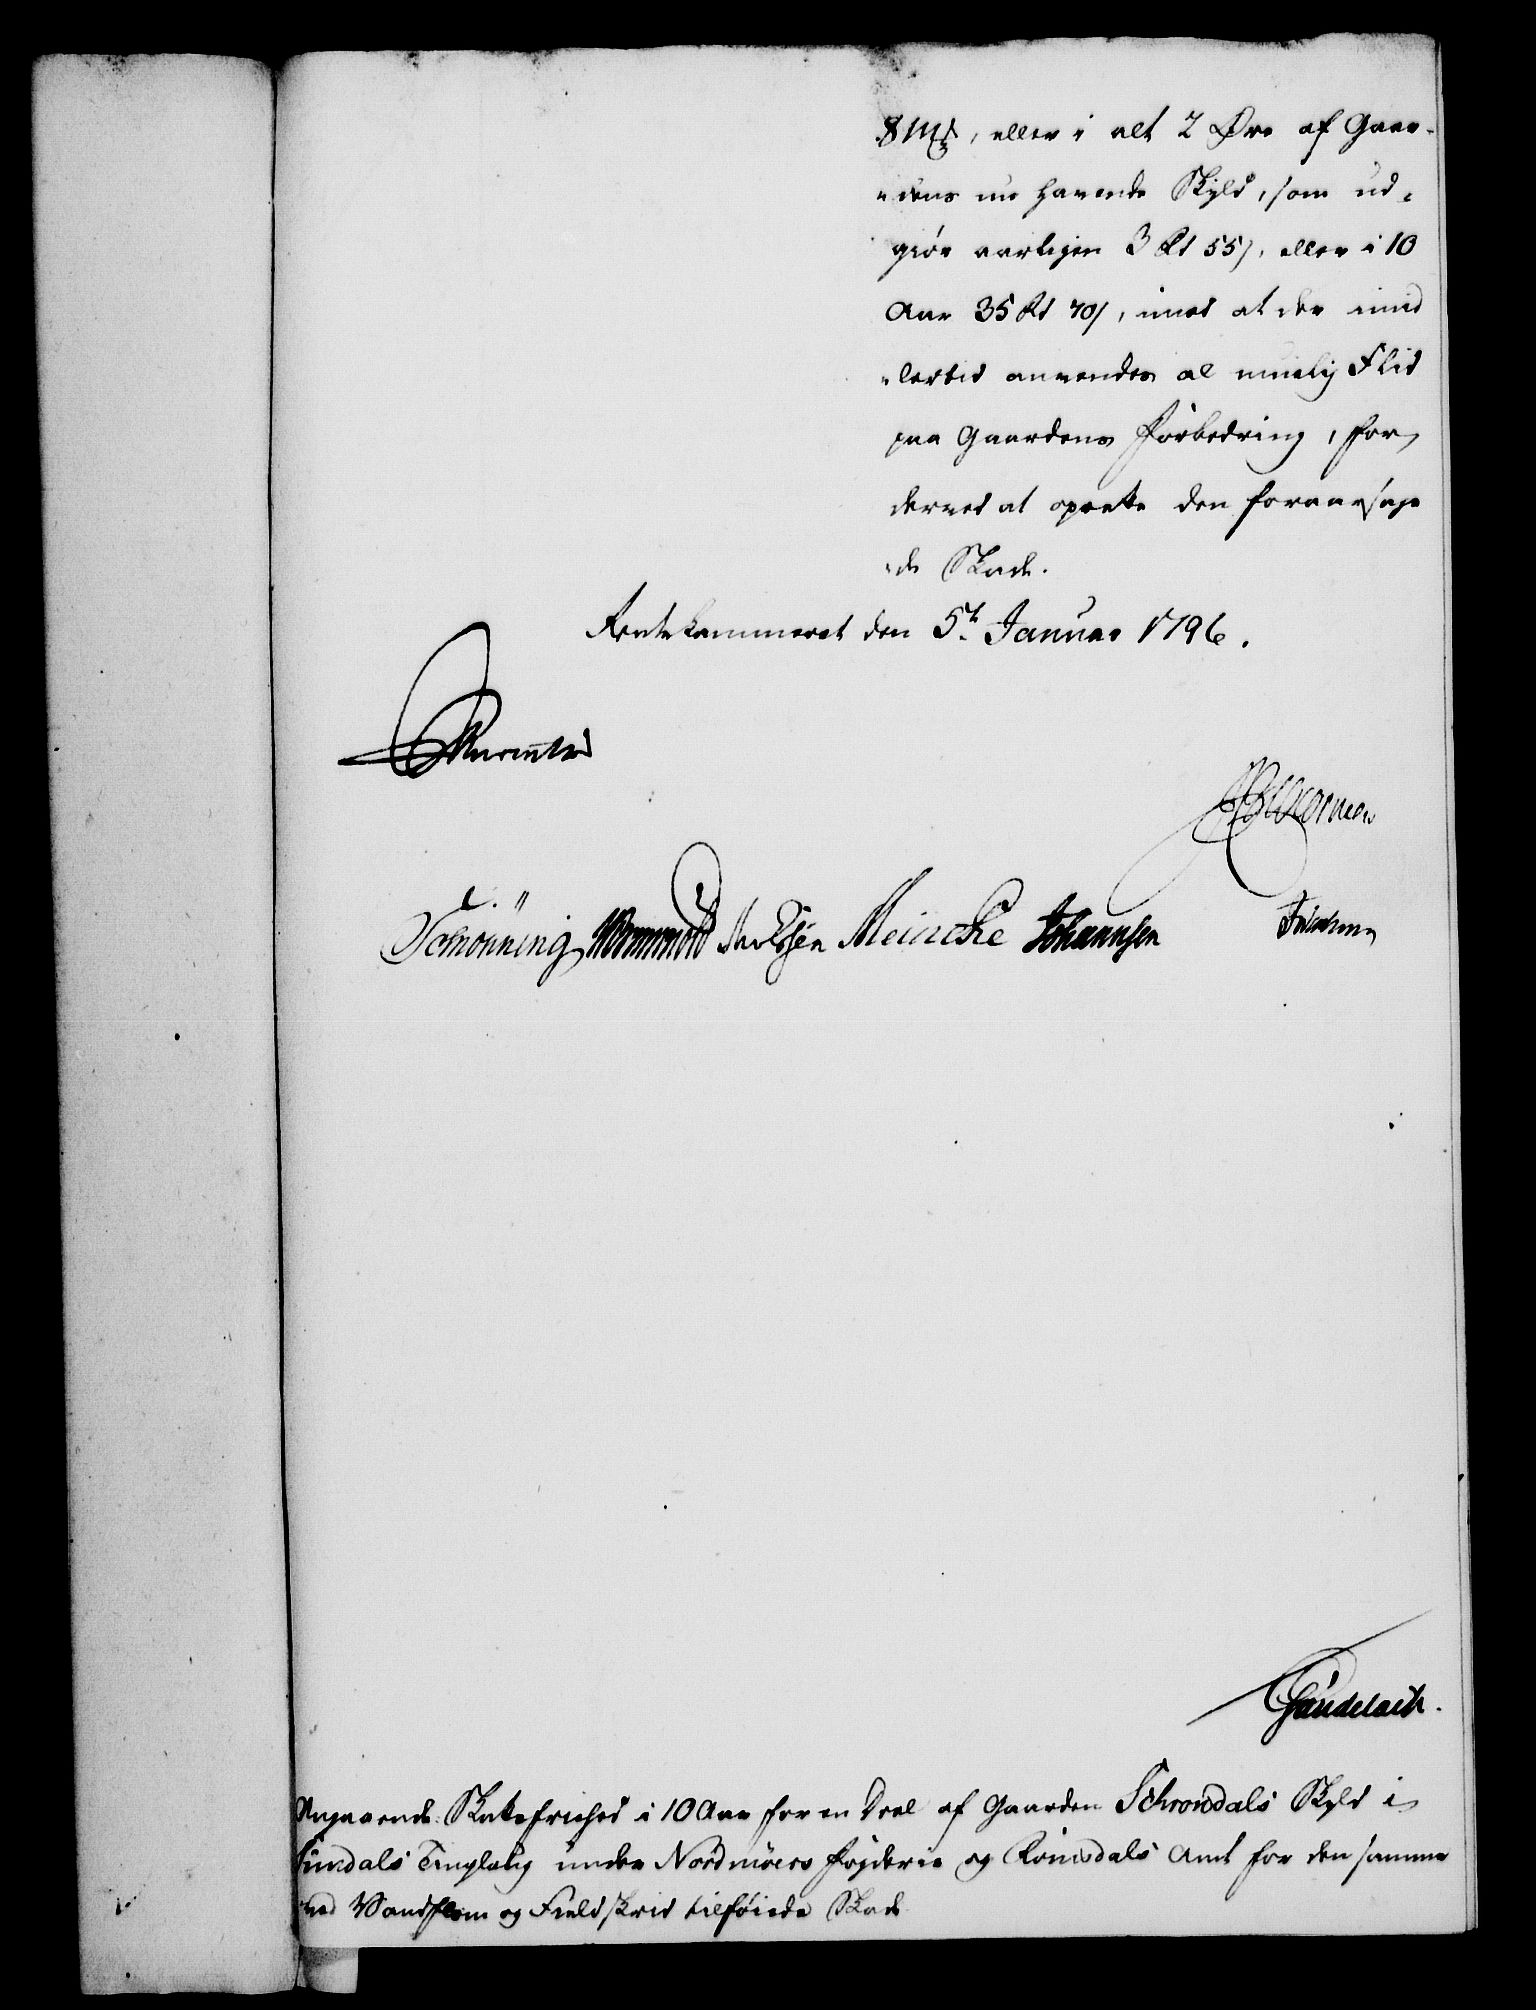 8 mk, eller i alt 2 Øre af Gaar-
"dens nu havende Skyld, som ud-
giør aarligen 3 Rd 55 s, eller i 10
Aar 35 Rd 70 s, imod at der imid
"lertid anvendes al muelig Flid
paa Gaardens Forbedring, for
derved at oprette den foraarsage
"de Skade.
Rentekammeret den 5t Januar 1796.
Schönning Wormskiold Meincke Johannsen
Güdelach.
Angaaende Skattefriehed i 10 Aar for en Deel af Gaarden Schrondals Skyld i
Sundals Tinglaug under Nordmøers Fogderie og Romsdals Amt for den samme
ved Vandflom og Fieldskrid tilføiede Skade